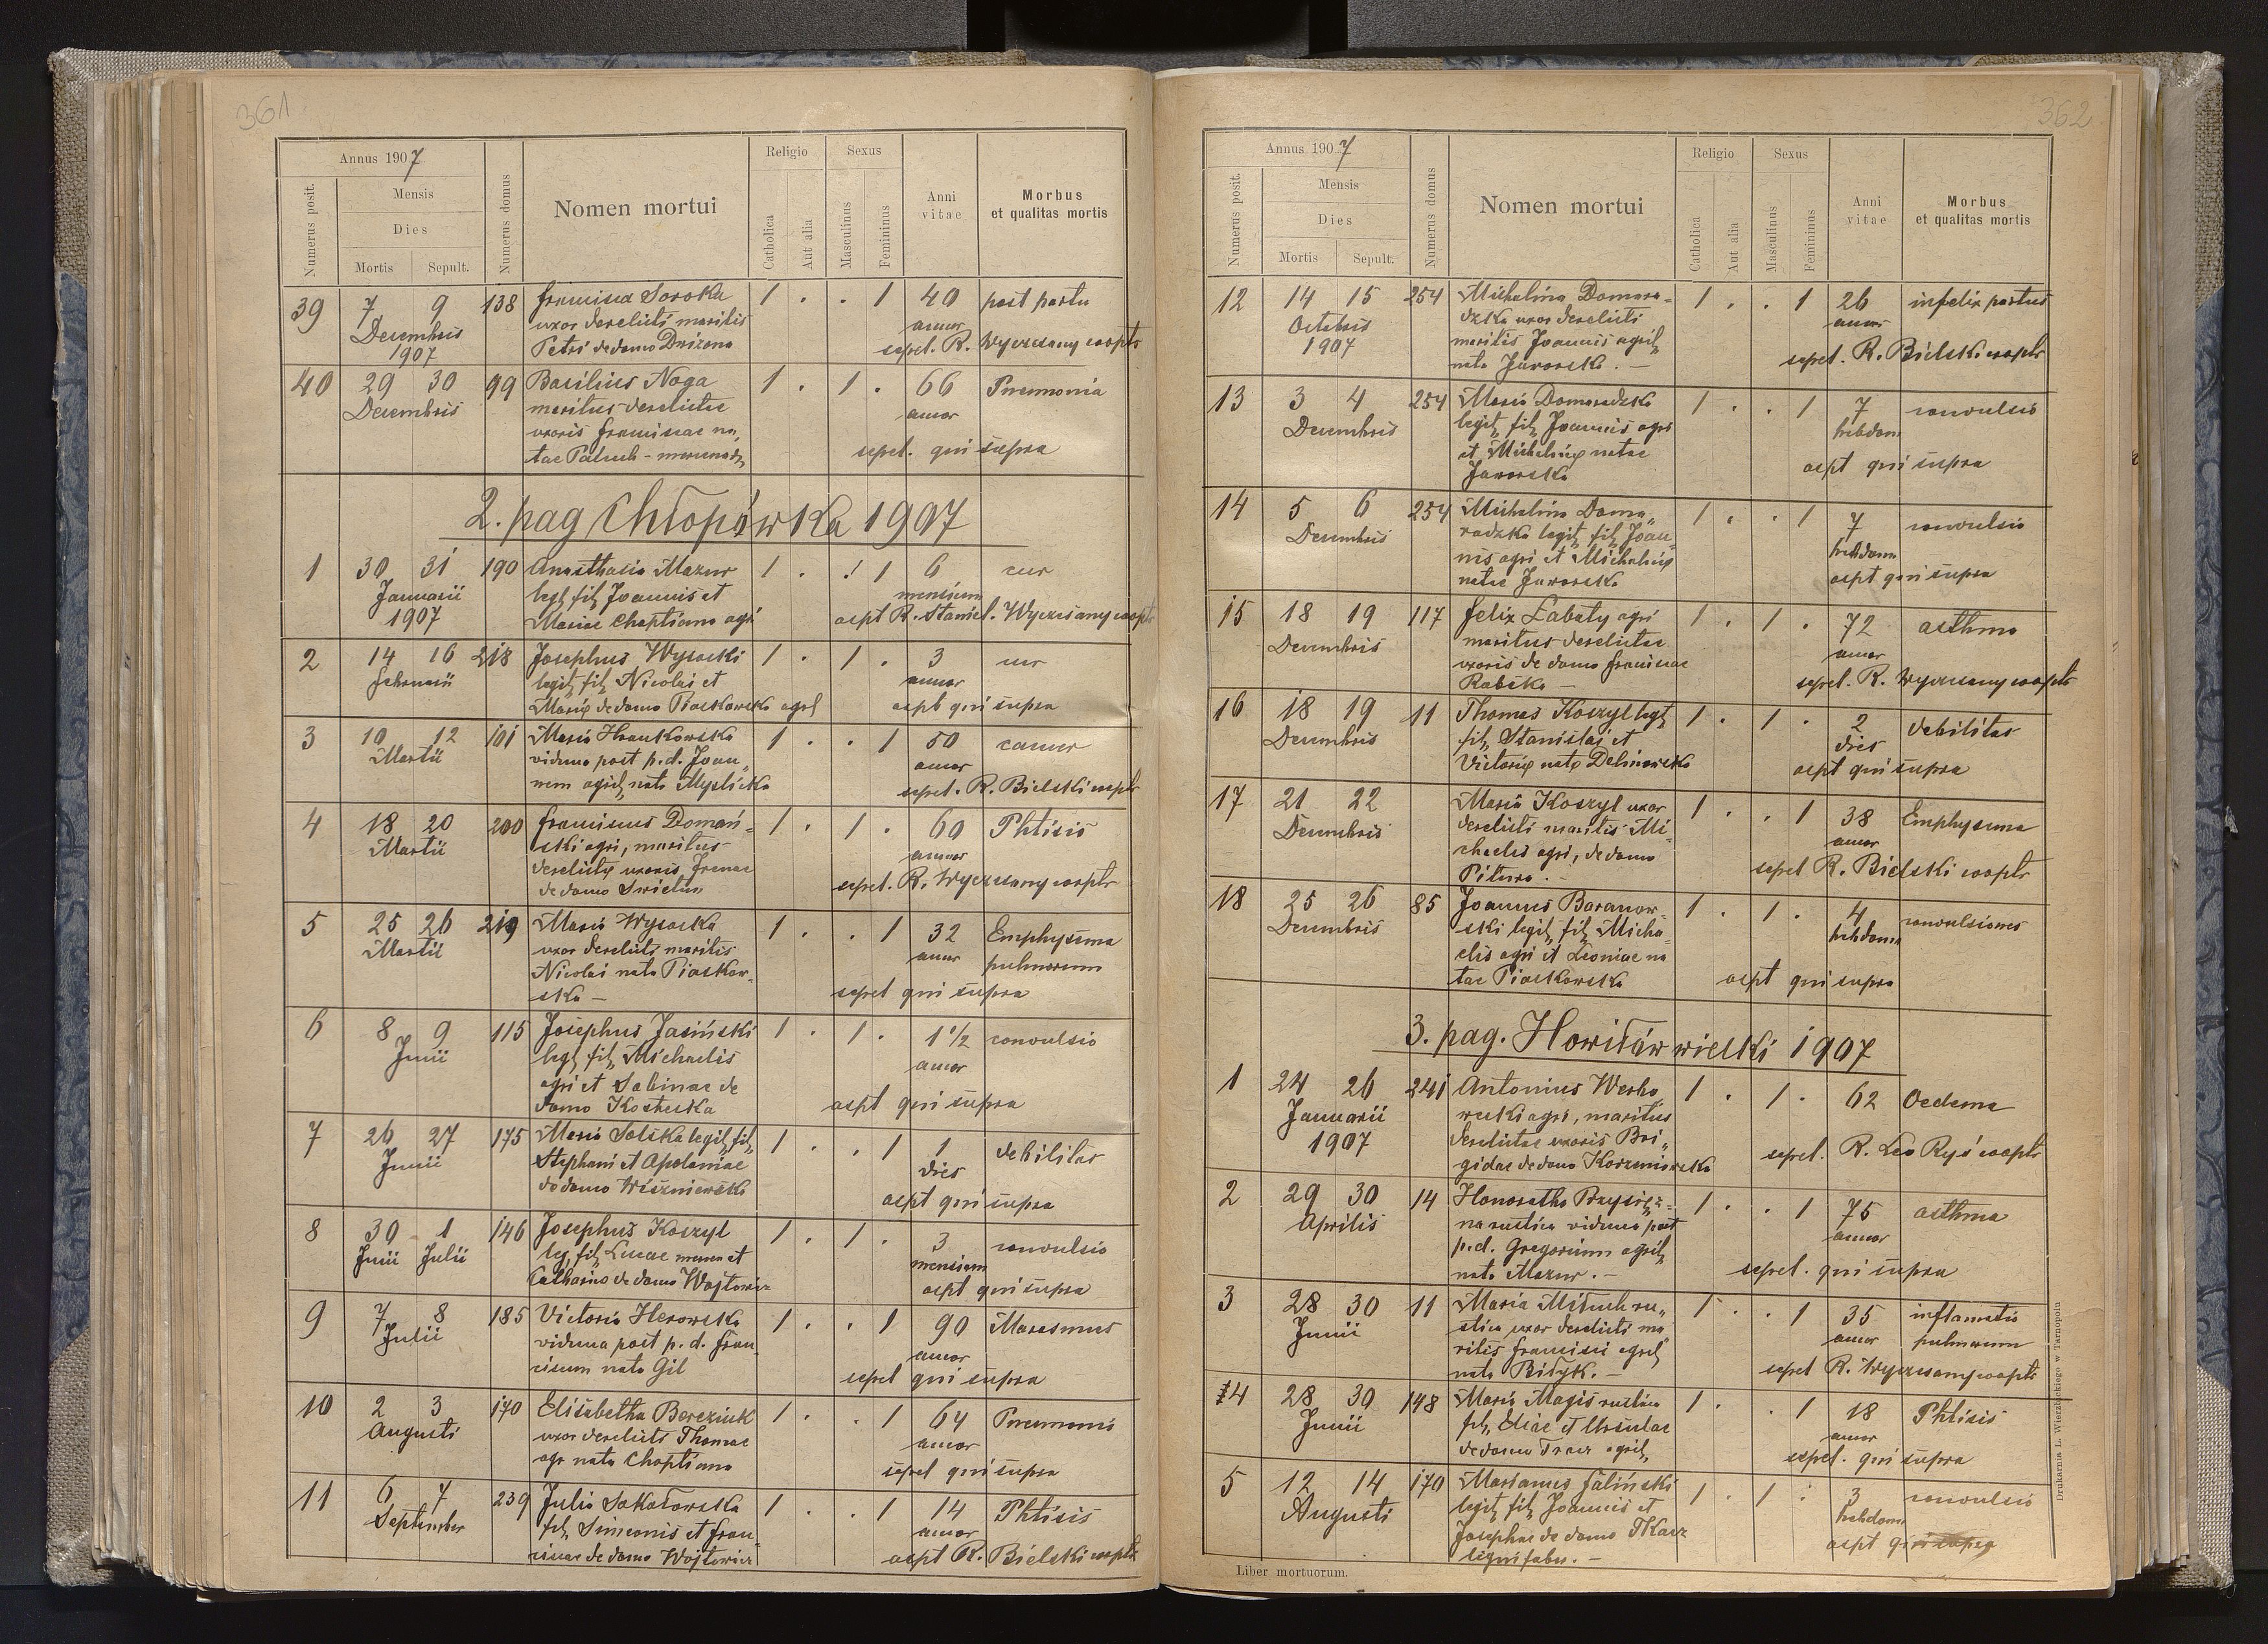 361
Annus 1907
Numerus posit.
Mensis
Dies
Mortis Sepult.
Numerus domus
Nomen mortui
Religio
Catholica
Aut alia
Sexus
Masculinus
Femininus
Anni vitae
Morbus
et qualitas mortis
39 7 9 138 Francisca Soroka 1 . . 1 40 post partu
Decembris uxor derelicti maritis annor
1907 Petri de domo Drizena sepel. R. Wyczesany coopts
40 29 30 99 Basilius Noga 1 . 1 . 66 Pneumonia
Decembris maritus derelictae annor
uxoris Franciscae na„
tae Paluch - mercenar, sepel. qui supra
2. pag Chłopówka 1907
1 30 31 190 Anasthasia Mazur 1 . . 1 6 cur
Januarii legt, fil, Joannis et mensium
1907 Mariae Choptiana agri aspt R. Stanisl. Wyczesany coopt
2 14 16 218 Josephus Wysocki 1 . 1 . 3 cur
Februarii legit, fil, Nicolai et annor
Marię de domo Piaskowska agrl aspt qui supra
3 10 12 101 Maria Hrankowska 1 . . 1 50 cancer
Martii vidua post p.d. Joan„ annor
nem agrel, nata Myslicka sepel. R. Bielski coopts
4 18 20 200 Franciscus Domań- 1 . 1 . 60 Phtisis
Martii ski agri, maritus annor
derelictę uxoris Irenae
de domo Swietun sepel. R. Wyczesany coopts
5 25 26 219 Maria Wysocka 1 . . 1 32 Emphysema
Martii uxor derelicti maritis annor pulmorum
Nicolai nata Piaskow-
ska — sepel qui supra
6 8 9 115 Josephus Jasiński 1 . 1 . 1 1/2 convulsio
Junii legt, fil, Michaelis annor
agri et Sabinae de
domo Kostecka aspt qui supra
7 26 27 175 Maria Solska legit, fil, 1 . . 1 1 debilitas
Junii Stephani et Apoloniae dies
de domo Wiszniewska aspt qui supra
8 30 1 146 Josephus Koszyl 1 . 1 . 3 convulsio
Junii Julii leg, fil, Lucae mercen et mensium
Catharina de domo Wojtowicz aspt qui supra
9 7 8 185 Victoria Herowska 1 . . 1 90 Marasmus
Julii vidua post p. d. Fran- annor
ciscum nata Gil sepel qui supra
10 2 3 170 Elisabetha Bereziuk 1 . . 1 64 Pneumonia
Augusti uxor derelicti Thomae annor
agr nata Choptiana sepel qui supra
11 6 7 239 Julia Sokołowska 1 . . 1 14 Phtisis
September fil, Simeonis et Fran- annor
ciscae de domo Wojtowicz aspt R. Bielski coopts
362
Annus 1907
Numerus posit.
Mensis
Dies
Mortis Sepult.
Numerus domus
Nomen mortui
Religio
Catholica
Aut alia
Sexus
Masculinus
Femininus
Anni vitae
Morbus
et qualitas mortis
12 14 15 254 Michalina Domara- 1 . . 1 26 infelix partus
Octobris dzka uxor derelicti annor
1907 maritis Joannis agril,
nata Jaworska. — sepel. R. Bielski coopts
13 3 4 254 Maria Domaradzka 1 . . 1 7 convulsio
Decembris legit, fil, Joannis agri hebdom
et Michalinę natae
Jaworska aspt qui supra
14 5 6 254 Michalina Doma„ 1 . . 1 7 convulsio
Decembris radzka legit, fil, Joan„ hebdom
nis agri et Michalinę
natae Jaworska aspt qui supra
15 18 19 117 Felix Łabaty agri 1 . 1 . 72 asthma
Decembris maritus derelictae annor
uxoris de domo Franciscae
Rabska — sepel. R. Wyczesany coopts
16 18 19 11 Thomas Koszyl legt, 1 . 1 . 2 debilitas
Decembris fil, Stanislai et dies
Victorię natę Delinowska aspt qui supra
17 21 22 Maria Koszyl uxor 1 . . 1 38 Emphysema
Decembris derelicti maritis Mi- annor
chaelis agri, de domo
Pitura. — sepel R. Bielski coopts
18 25 26 85 Joannes Baranow- 1 . 1 . 4 convulsiones
Decembris ski legit, fil, Micha- hebdom
elis agri et Leoniae na
tae Piaskowska aspt qui supra
3. pag. Howiłów wielki 1907
1 24 26 241 Antonius Werbo 1 . 1 . 62 Oedema
Januarii wecki agri, maritus
1907 derelictae uxoris Bri„
gidae de domo Korzeniowska sepel. R. Leo Ryś coopts
2 29 30 14 Honoratha Przysięż- 1 . . 1 75 asthma
Aprilis na rustica vidua post annor
p.d. Gregorium agril,
nata Mazur. — sepel. qui supra
3 28 30 11 Maria Mituch ru„ 1 . . 1 35 inflamatio
Junii stica uxor derelicti ma annor pulmorum
ritis Francisci agrel,
nata Biłyk. — sepel R. Wyczesany coopts
4 28 30 148 Maria Magis rustica 1 . . 1 18 Phtisis
Junii fil, Eliae et Ursulae annor
de domo Tracz agril, sepel. qui supra
5 12 14 170 Marianus Faliński 1 . 1 . 3 convulsio
Augusti legit, fil, Joannis et hebdom
Josephae de domo Tkacz
lignifabri. — aspt qui supra
Liber mortuorum.
Drukarnia L. Wierzbickiego w Tarnopolu